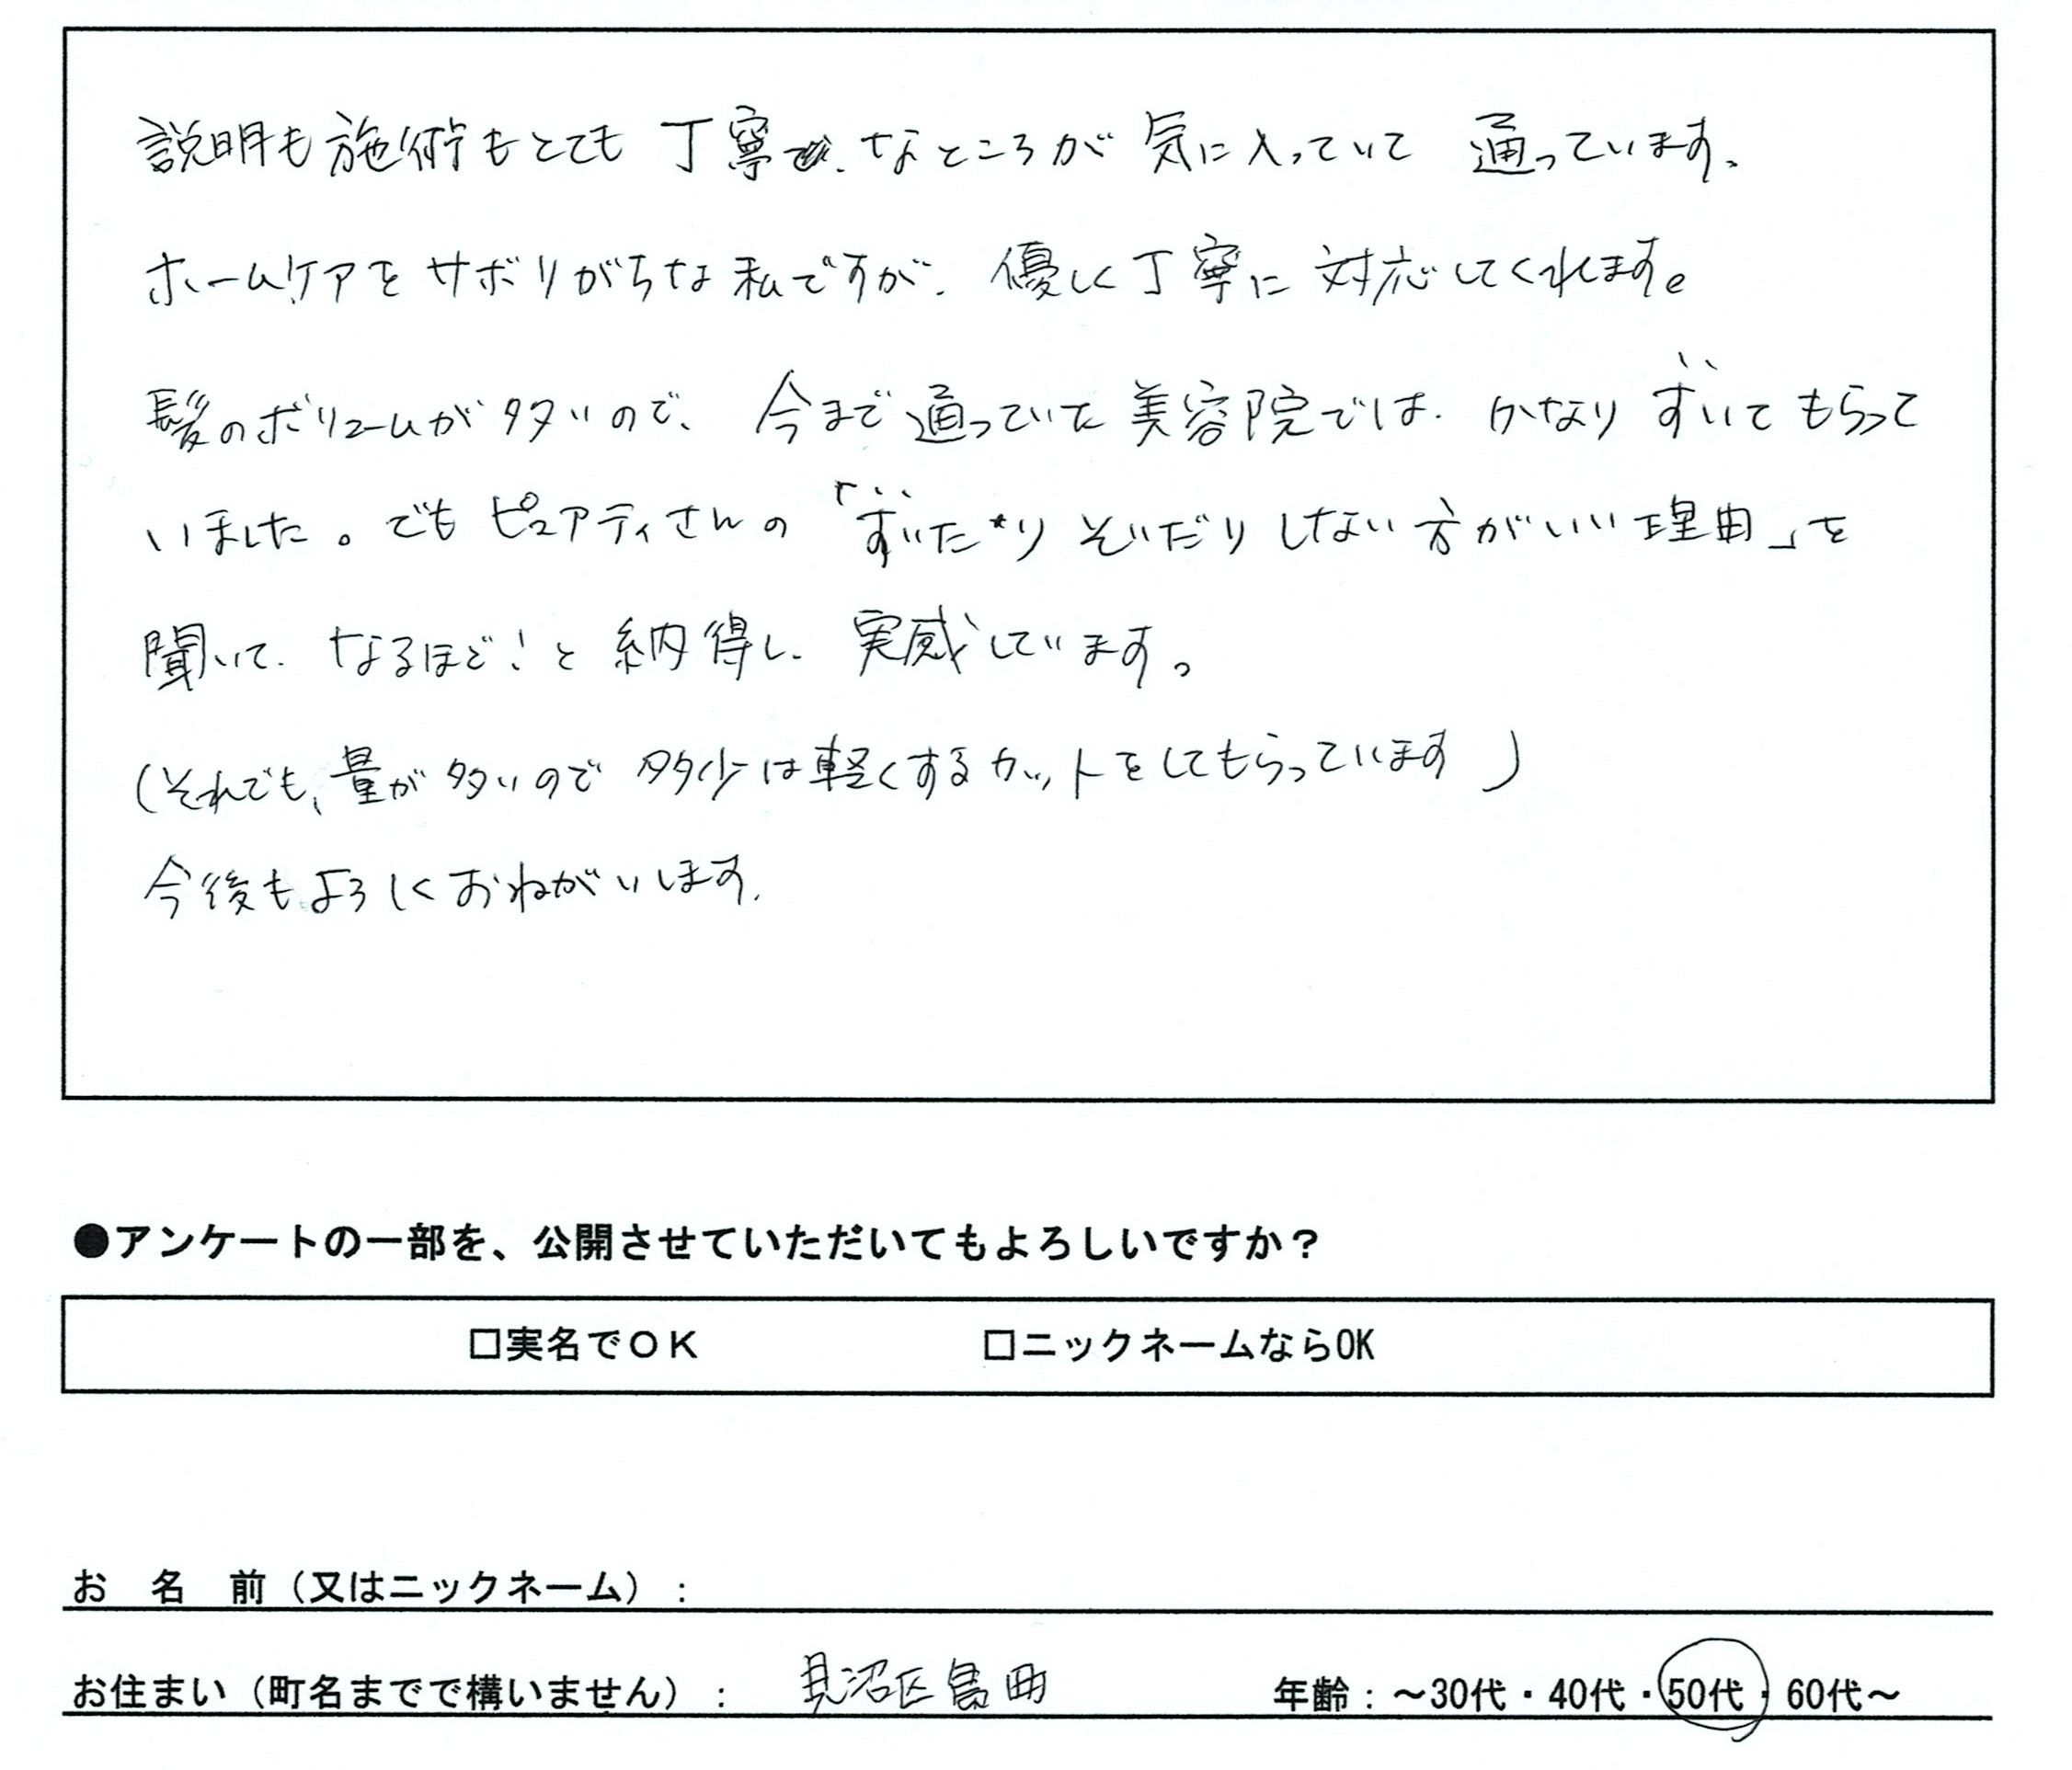 説明も施術もとても丁寧なところが気に入っていて 通っています。
ホームケアをサボりがちな私ですが、優しく丁寧に対応してくれます。
髪のボリュームが多いので、今まで通っていた美容院では、かなりすいてもらって
いました。でもピュアティさんの「すいたりそいだりしない方がいい理由」を
聞いて、なるほど!と納得し、実感しています。
(それでも、量が多いので多少は軽くするカットをしてもらっています)
今後もよろしくおねがいします。
●アンケートの一部を、公開させていただいてもよろしいですか?
□実名でOK □ニックネームならOK
お 名 前(又はニックネーム):
お住まい(町名までで構いません): 見沼区島町 年齢:~30代・40代・50代・60代~